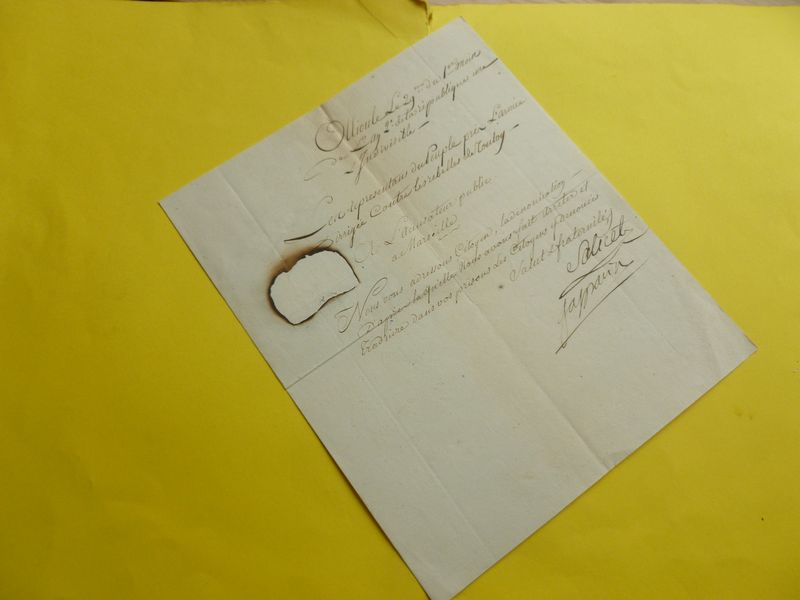 Ollioule Le 29.me du 1er Mois
De L'an 2e de la république une
Indivisible —
Les représentans du Peuple près L'armée
dirigée Contre les rebelles de Toulon —
A L'accusateur public
a Marseille
Nous vous adressons Citoyen, la dénonciation
D'après laquelle Nous avons fait arrêter et
traduire dans vos prisons Les Citoyens y dénoncés
Salut & fraternité
Saliceti
Gasparin